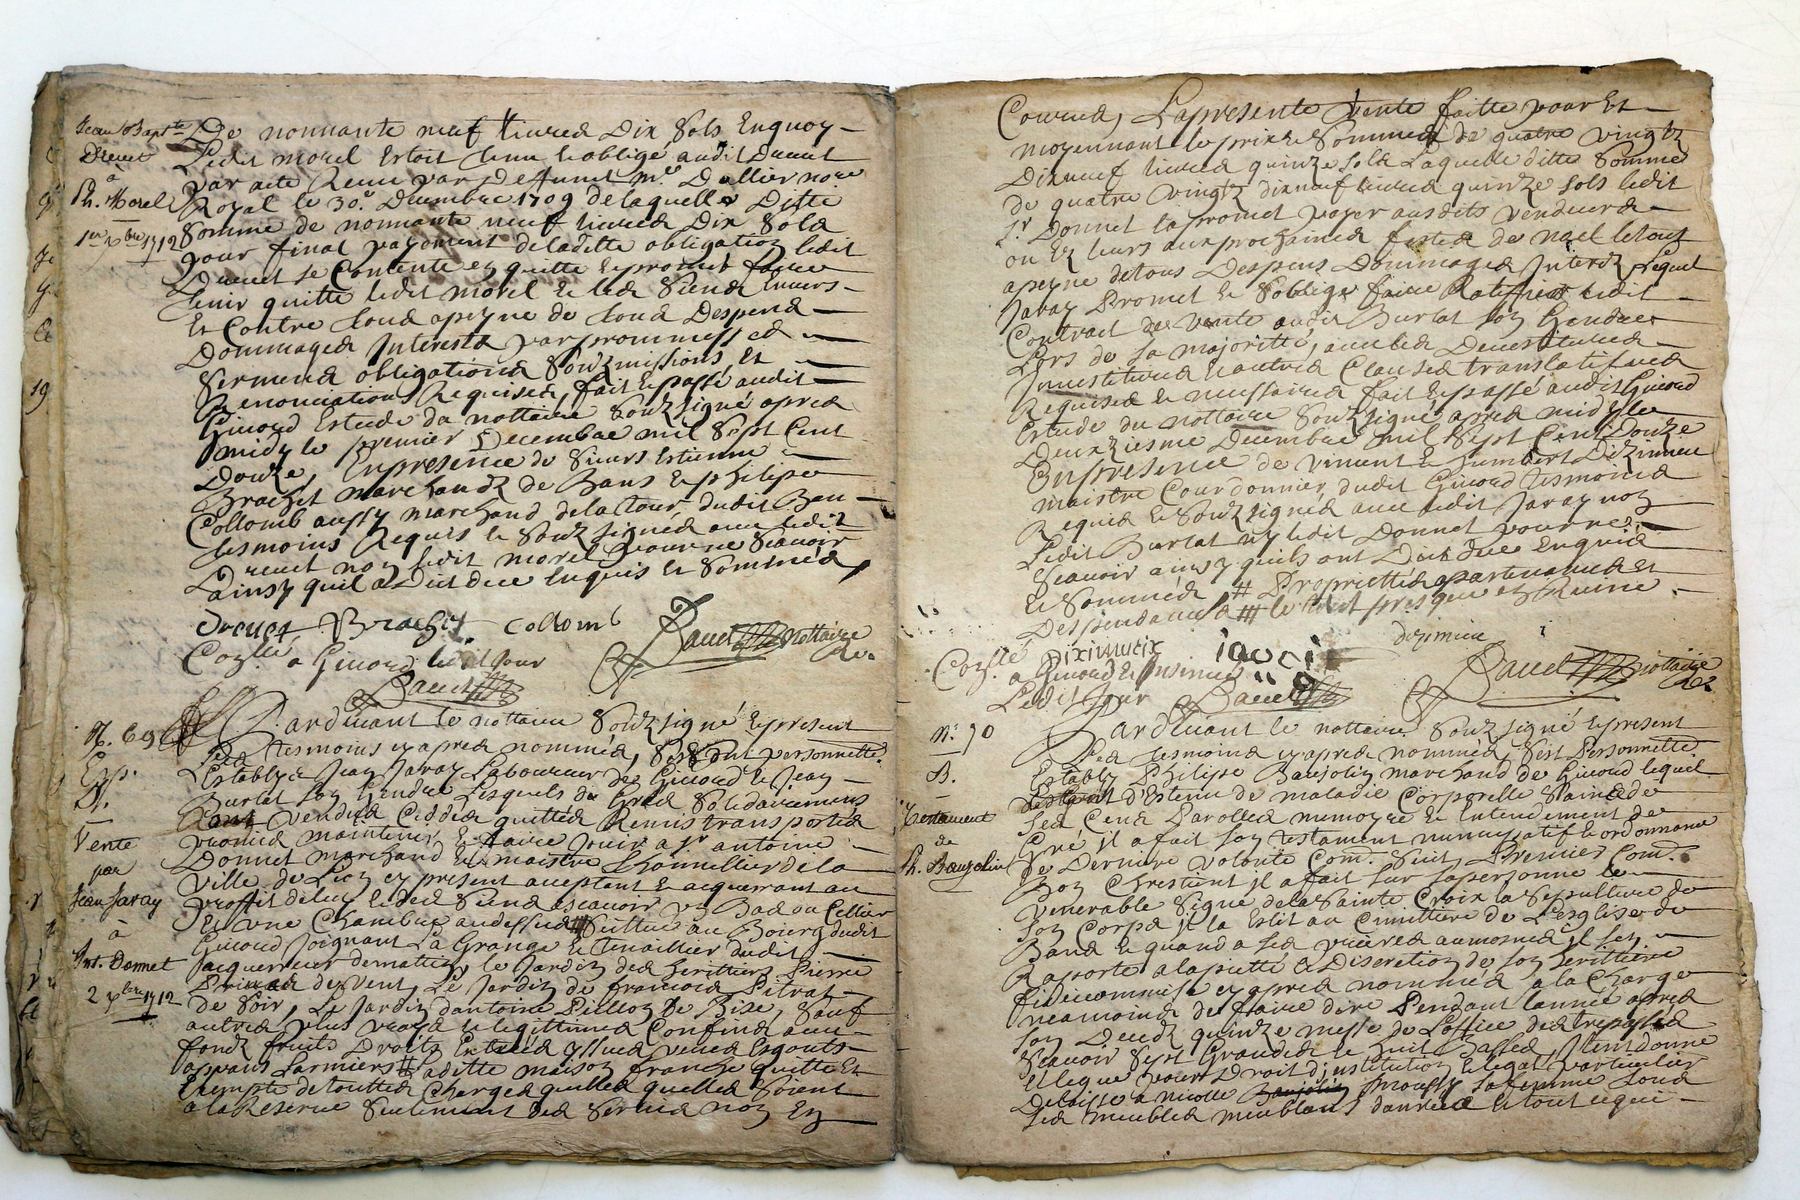 Jean Bapte
Drevet
a
Ph. Morel
1er xbre 1712
De nonnante neuf livres Dix Sols Enquoy
Ledit morel Estoit tenu et obligé audit Drevet
par acte Receu par Deffunct Me Dallier nore
Royal le 30e Decembre 1709 de laquelle Ditte
Somme de nonnante neuf livres Dix Sols
pour final payement de laditte obligation ledit
Drevet se Contente et quitte Et promet faire
tenir quitte ledit morel Et les Siens Envers
Et Contre tous apeyne de tous Despens
Dommages Interests par prommesses
Serments obligations Soubzmissions Et
Renonciations Requises, fait Et passé audit
Givord Estude du nottaire Soubzsigné apres
midy le premier Decembre mil Sept Cent
Douze, En presence de Sieurs Estienne
Brachet marchand de Bans Et philipe
Collomb aussy marchand de la tour dudit Ban
tesmoins Requis Et Soubzsignés avec ledit
Drevet non ledit morel pour ne Scavoir
ainsy quil a Dit de ce Enquis Et Sommés
Drevet Brachet Collomb Baud nottaire
Conlle a Givord ledit Jour
Baud
N. 69
Exp.
B.
Vente
par
Jean Javay
à
Ant. Donnet
2 xbre 1712
Pardevant le nottaire Soubzsigné Et present
Les tesmoins cy apres nommés, Se Sont personnellet
Establys Jean Javay Laboureur de Givord Et Jean
Burlat Son Gendre Lesquels de Gres Solidairement
Ont Vendus Ceddés quittés Remis transportés
promis maintenir Et faire Jouir a Sr antoine
Donnet marchand Et maistre Thonnellier de la
Ville de Lion cy present acceptant Et acquerrant au
proffit de luy Et des Siens ascavoir un Bas ou Cellier
Et une Chambre au dessus Scittué au Bourg dudit
Givord Joignant La Grange Et Tenaillier dudit
Jacquerreur de matin, le Jardin des heritiers Pierre
Prinat de Vent, Le Jardin de francois Pitrat
de Soir, Le Jardin dantoine Peillon De Bize, Sauf
autres plus vrays Et legittimes Confins avec
fonds fruits Droits Entrées yssues venes Esgouts
appans Larmiers laditte maison franche quitte Et
Exempte de touttes Charges quelles quelles Soient
a la Reserve Seulement des Servis non En
Courus, La presente Vente faitte pour Et
moyennant le prix Et Somme de quatre Vingts
Dixneuf livres quinze Sols Laquelle ditte Somme
de quatre Vingts dixneuf livres quinze Sols ledit
Sr Donnet la promet payer ausdits Vendeurs
ou Es leurs aux prochaines festes de noel le tout
apeyne de tous Despens Dommages Interets Lequel
Javay Promet Et Soblige faire Ratiffier ledit
Contract de Vente audit Burlat Son Gendre
Lors de Sa majorité, avec les Devestitures
Investitures Et autres Clauses translatifves
Requises Et necessaires fait Et passé audit Givord
Estude du nottaire Soubzsigné apres midy le
Deuxiesme Decembre mil Sept Cent Douze
En presence de Vincent Et humbert Diximieu
maistre Courdonnier dudit Givord tesmoins
Requis Et Soubzsignés avec ledit Javay non
Ledit Burlat ny ledit Donnet pour ne
Scavoir ainsy quils ont Dit de ce Enquis
Et Sommés # Proprietté appartenances Et
Despendances
Diximieux Javay diximieu
Baud nottaire
Conlle a Givord Et Insinué
Ledit Jour Baud
N. 70
B.
Testament
de
Ph. Baujolin
Pardevant le nottaire Soubzsigné Et present
Les tesmoins cy apres nommés, Sest Personnellet
Estably Philipe Baujolin marchand de Givord lequel
Destenu de maladie Corporelle Sain de
Ses Cens Parolles memoyre Et Entendement de
Gré il a fait Son testament nuncupatif Et ordonnance
de Derniere Volonté Com. Suit Premier Com.
Bon Chrestient il a fait Sur Sa personne le
Venerable Signe de la Sainte Croix la Sepulture de
Son Corps il la Eslit au Cimittiere de Lesglise de
Bans Et quand a Ses Euvres aumosnes il Sen
Raporte a la pietté Et Discretion de Son heritiere
fideicommise cy apres nommée a la Charge
neamoins de faire dire Pendant lannée apres
Son Decés quinze messe de Loffice des trepassés
Scavoir Sept Grandes Et huit Basses, Item donne
Et legue pour Droit dinstitution Et legat particulier
Delaisse a nicolle mously Sa femme tous
Ses meubles meublants danrées Et tout ce qui